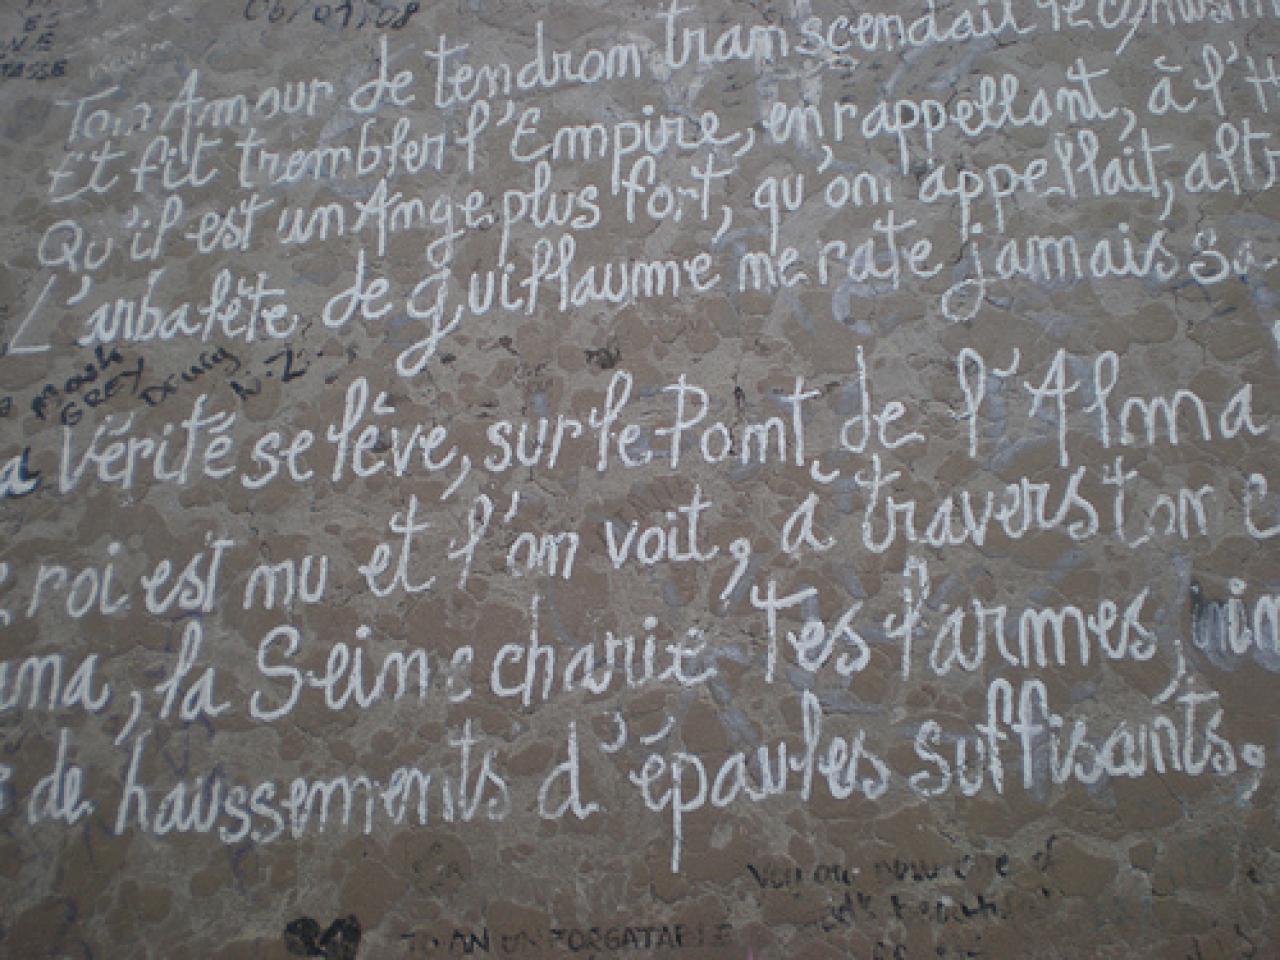 06/07/08
ES
TASSE
Ton Amour de tendron transcendait
Et fit trembler l'Empire, en, rappellant, à l'H
Qu'il est un Ange plus fort, qu'on appellait, alt
L'arbalète de guillaume ne rate jamais sa
Mark
GREY
N.Z.
a Vérité se lève, sur le Pont de l'Alma
roi est nu et l'on voit, à travers ton c
ma, la Seine charie tes larmes,
de haussements d'épaules suffisants.
You are now one of
TO AN UNFORGATABLE